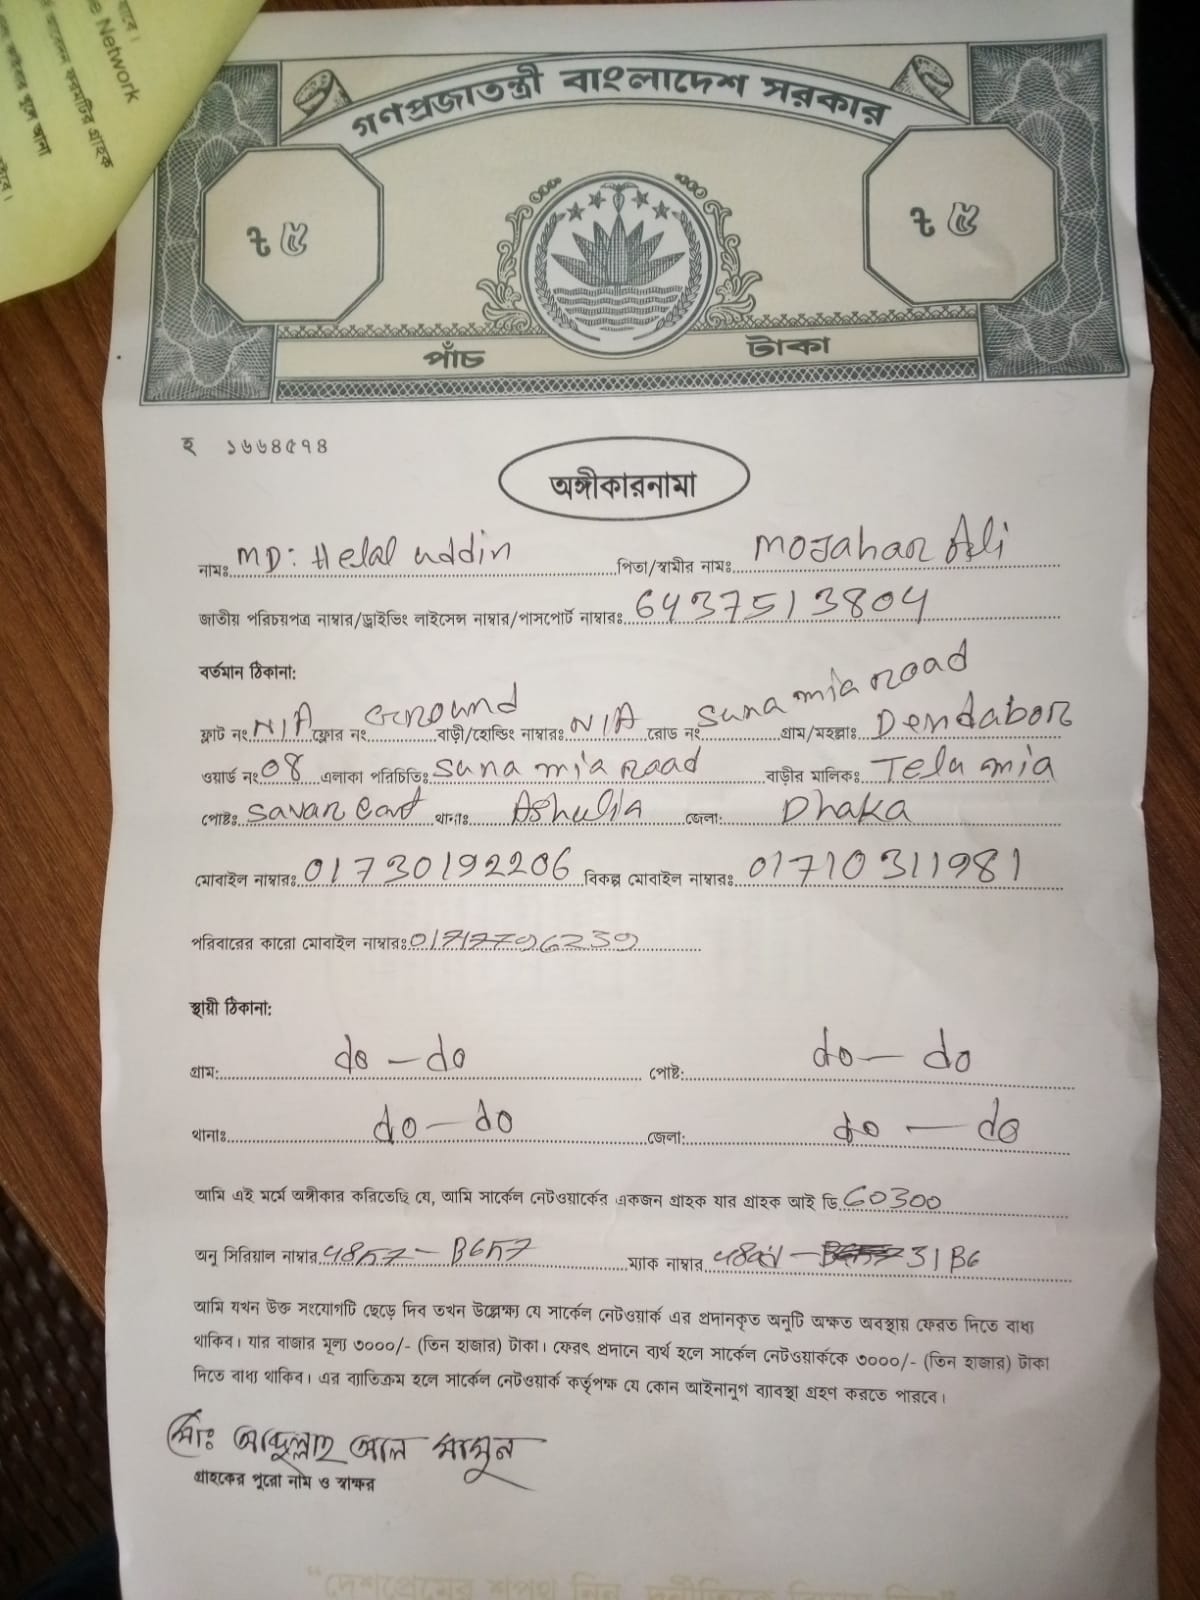 যাবে।
e Network
আবেদন ফরমটির গ্রাহক
গণপ্রজাতন্ত্রী বাংলাদেশ সরকার
৳ ৫
৳ ৫
পাঁচ
টাকা
হ ১৬৬৪৫৭৪
অঙ্গীকারনামা
নামঃ MD: Helal uddin পিতা/স্বামীর নামঃ MOJahar Ali
জাতীয় পরিচয়পত্র নাম্বার/ড্রাইভিং লাইসেন্স নাম্বার/পাসপোর্ট নাম্বারঃ 6437513804
বর্তমান ঠিকানা:
ফ্লাট নং N/A ফ্লোর নং Ground বাড়ী/হোল্ডিং নাম্বারঃ N/A রোড নং suna mia road গ্রাম/মহল্লাঃ Dendabor
ওয়ার্ড নং 08 এলাকা পরিচিতিঃ suna mia road বাড়ীর মালিকঃ Telu mia
পোষ্টঃ savar cant থানাঃ Ashulia জেলা: Dhaka
মোবাইল নাম্বারঃ 01730192206 বিকল্প মোবাইল নাম্বারঃ 01710311981
পরিবারের কারো মোবাইল নাম্বারঃ
স্থায়ী ঠিকানা:
গ্রাম: do — do পোষ্ট: do — do
থানাঃ do — do জেলা: do — do
আমি এই মর্মে অঙ্গীকার করিতেছি যে, আমি সার্কেল নেটওয়ার্কের একজন গ্রাহক যার গ্রাহক আই ডি 60300
অনু সিরিয়াল নাম্বার ম্যাক নাম্বার 31B6
আমি যখন উক্ত সংযোগটি ছেড়ে দিব তখন উল্লেক্ষ্য যে সার্কেল নেটওয়ার্ক এর প্রদানকৃত অনুটি অক্ষত অবস্থায় ফেরত দিতে বাধ্য
থাকিব। যার বাজার মূল্য ৩০০০/- (তিন হাজার) টাকা। ফেরৎ প্রদানে ব্যর্থ হলে সার্কেল নেটওয়ার্ককে ৩০০০/- (তিন হাজার) টাকা
দিতে বাধ্য থাকিব। এর ব্যাতিক্রম হলে সার্কেল নেটওয়ার্ক কর্তৃপক্ষ যে কোন আইনানুগ ব্যাবস্থা গ্রহণ করতে পারবে।
মোঃ আব্দুল্লাহ আল মামুন
গ্রাহকের পুরো নাম ও স্বাক্ষর